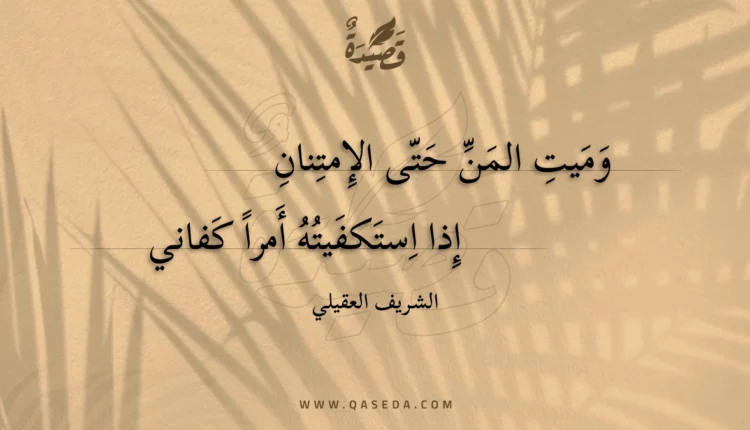 قَصِيدَةٌ
وَمَيتِ المَنِّ حَتّى الإِمتِنانِ
إِذا اِستَكفَيتُهُ أَمراً كَفاني
الشريف العقيلي
WWW.QASEDA.COM